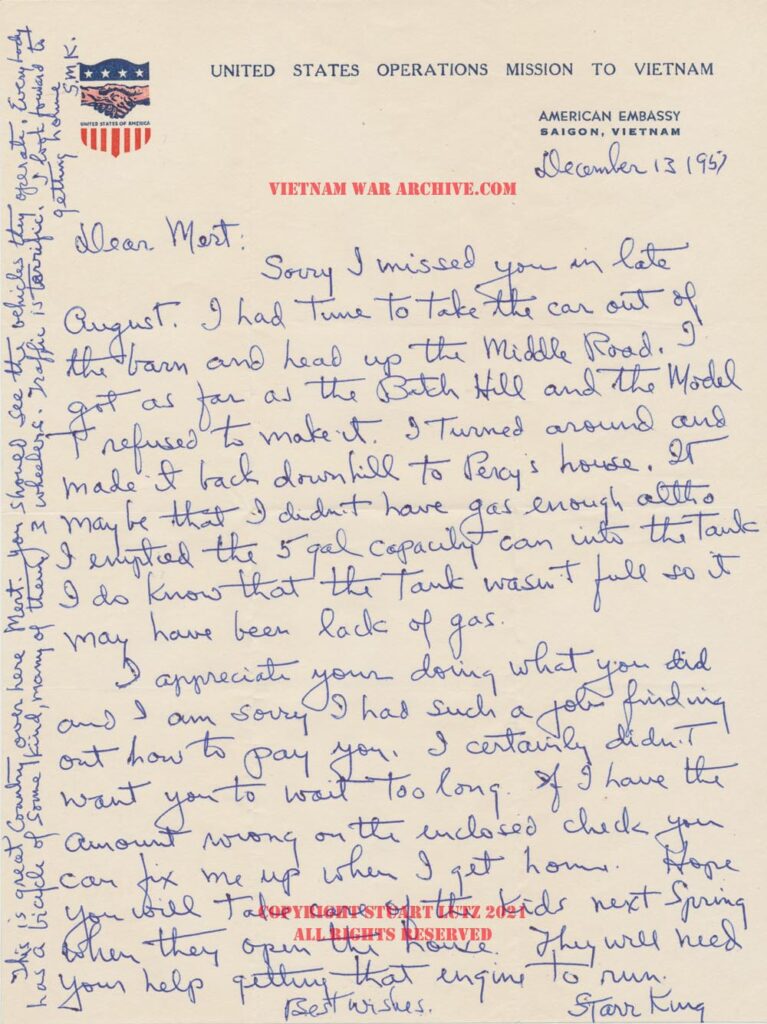 UNITED STATES OPERATIONS MISSION TO VIETNAM
UNITED STATES OF AMERICA
AMERICAN EMBASSY
SAIGON, VIETNAM
December 13 1957
VIETNAM WAR ARCHIVE.COM
Dear Mert:
Sorry I missed you in late
August. I had time to take the car out of
the barn and head up the Middle Road. I
got as far as the Bitch Hill and the Model
T refused to make it. I turned around and
made it back downhill to Percy's house. It
maybe that I didn't have gas enough altho
I emptied the 5 gal capacity can into the tank
I do know that the tank wasn't full so it
may have been lack of gas.
I appreciate your doing what you did
and I am sorry I had such a job finding
out how to pay you. I certainly didn't
want you to wait too long. If I have the
amount wrong on the enclosed check you
can fix me up when I get home. Hope
you will take care of the kids next Spring
COPYRIGHT STUART LUTZ 2021
ALL RIGHTS RESERVED
when they open the house. They will need
your help getting that engine to run.
Best wishes.
Starr King
This is great Country over here Mert. You should see the vehicles they operate. Everybody
has a bicycle of some kind, many of them 3 wheelers. Traffic is terrific. I look forward to
getting home
S.M.K.